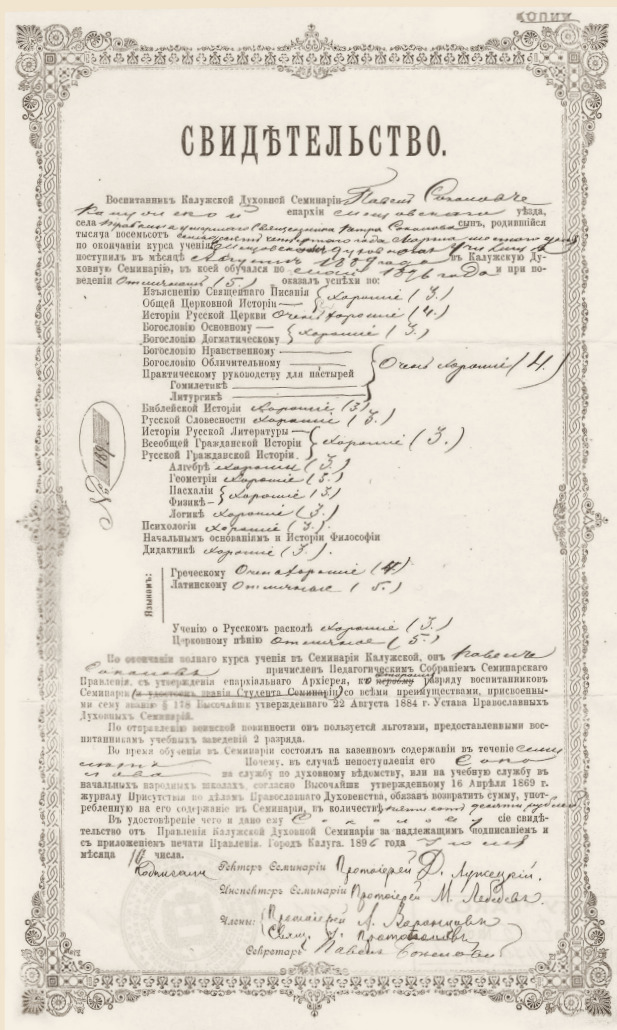 КОПИЯ
СВИДѢТЕЛЬСТВО.
Воспитанникъ Калужской Духовной Семинаріи Павелъ Соколовъ
Калужской епархіи уѣзда,
села умершаго Священника Петра Соколова сынъ, родившійся
тысяча восемьсотъ семьдесятъ четвертаго года Марта дня
по окончаніи курса ученія
поступилъ въ мѣсяцѣ Августѣ 1889 года въ Калужскую Ду-
ховную Семинарію, въ коей обучался по 1896 года и при по-
веденіи отличномъ (5) оказалъ успѣхи по:
Изъясненію Священнаго Писанія
Общей Церковной Исторіи хорошіе (3.)
Исторіи Русской Церкви Очень хорошіе (4.)
Богословію Основному
Богословію Догматическому хорошіе (3.)
Богословію Нравственному
Богословію Обличительному
Практическому руководству для пастырей Очень хорошіе (4.)
Гомилетикѣ
Литургикѣ
Библейской Исторіи хорошіе (3)
Русской Словесности хорошіе (3.)
Исторіи Русской Литературы
Всеобщей Гражданской Исторіи хорошіе (3.)
Русской Гражданской Исторіи.
№ 189
Алгебрѣ хорошіе (3.)
Геометріи хорошіе (3.)
Пасхаліи
Физикѣ хорошіе (3)
Логикѣ хорошіе (3.)
Психологіи хорошіе (3.)
Начальнымъ основаніямъ и Исторіи Философіи
Дидактикѣ хорошіе (3).
Языкамъ:
Греческому Очень хорошіе (4.)
Латинскому Отличные (5.)
Ученію о Русскомъ расколѣ хорошіе (3.)
Церковному пѣнію отличное (5.)
По окончаніи полнаго курса ученія въ Семинаріи Калужской, онъ Павелъ
Соколовъ причисленъ Педагогическимъ Собраніемъ Семинарскаго
Правленія, съ утвержденія епархіальнаго Архіерея, къ первому разряду воспитанниковъ
Семинаріи (и удостоенъ званія Студента Семинаріи) со всѣми преимуществами, присвоенны-
ми сему званію § 178 Высочайше утвержденнаго 22 Августа 1884 г. Устава Православныхъ
Духовныхъ Семинарій.
По отправленію воинской повинности онъ пользуется льготами, предоставленными вос-
питанникамъ учебныхъ заведеній 2 разряда.
Во время обученія въ Семинаріи состоялъ на казенномъ содержаніи въ теченіе
Почему, въ случаѣ непоступленія его Соко
лова на службу по духовному вѣдомству, или на учебную службу въ
начальныхъ народныхъ школахъ, согласно Высочайше утвержденному 16 Апрѣля 1869 г.
журналу Присутствія по дѣламъ Православнаго Духовенства, обязанъ возвратить сумму, упот-
ребленную на его содержаніе въ Семинаріи, въ количествѣ рублей
Въ удостовѣреніе чего и дано ему Соколову сіе свидѣ-
тельство отъ Правленія Калужской Духовной Семинаріи за надлежащимъ подписаніемъ и
съ приложеніемъ печати Правленія. Городъ Калуга. 1896 года
мѣсяца числа.
Ректоръ Семинаріи Протоіерей
Инспекторъ Семинаріи Протоіерей М. Лебедевъ
Члены: Протоіерей
Свящ.
Секретарь Павелъ Соколовъ